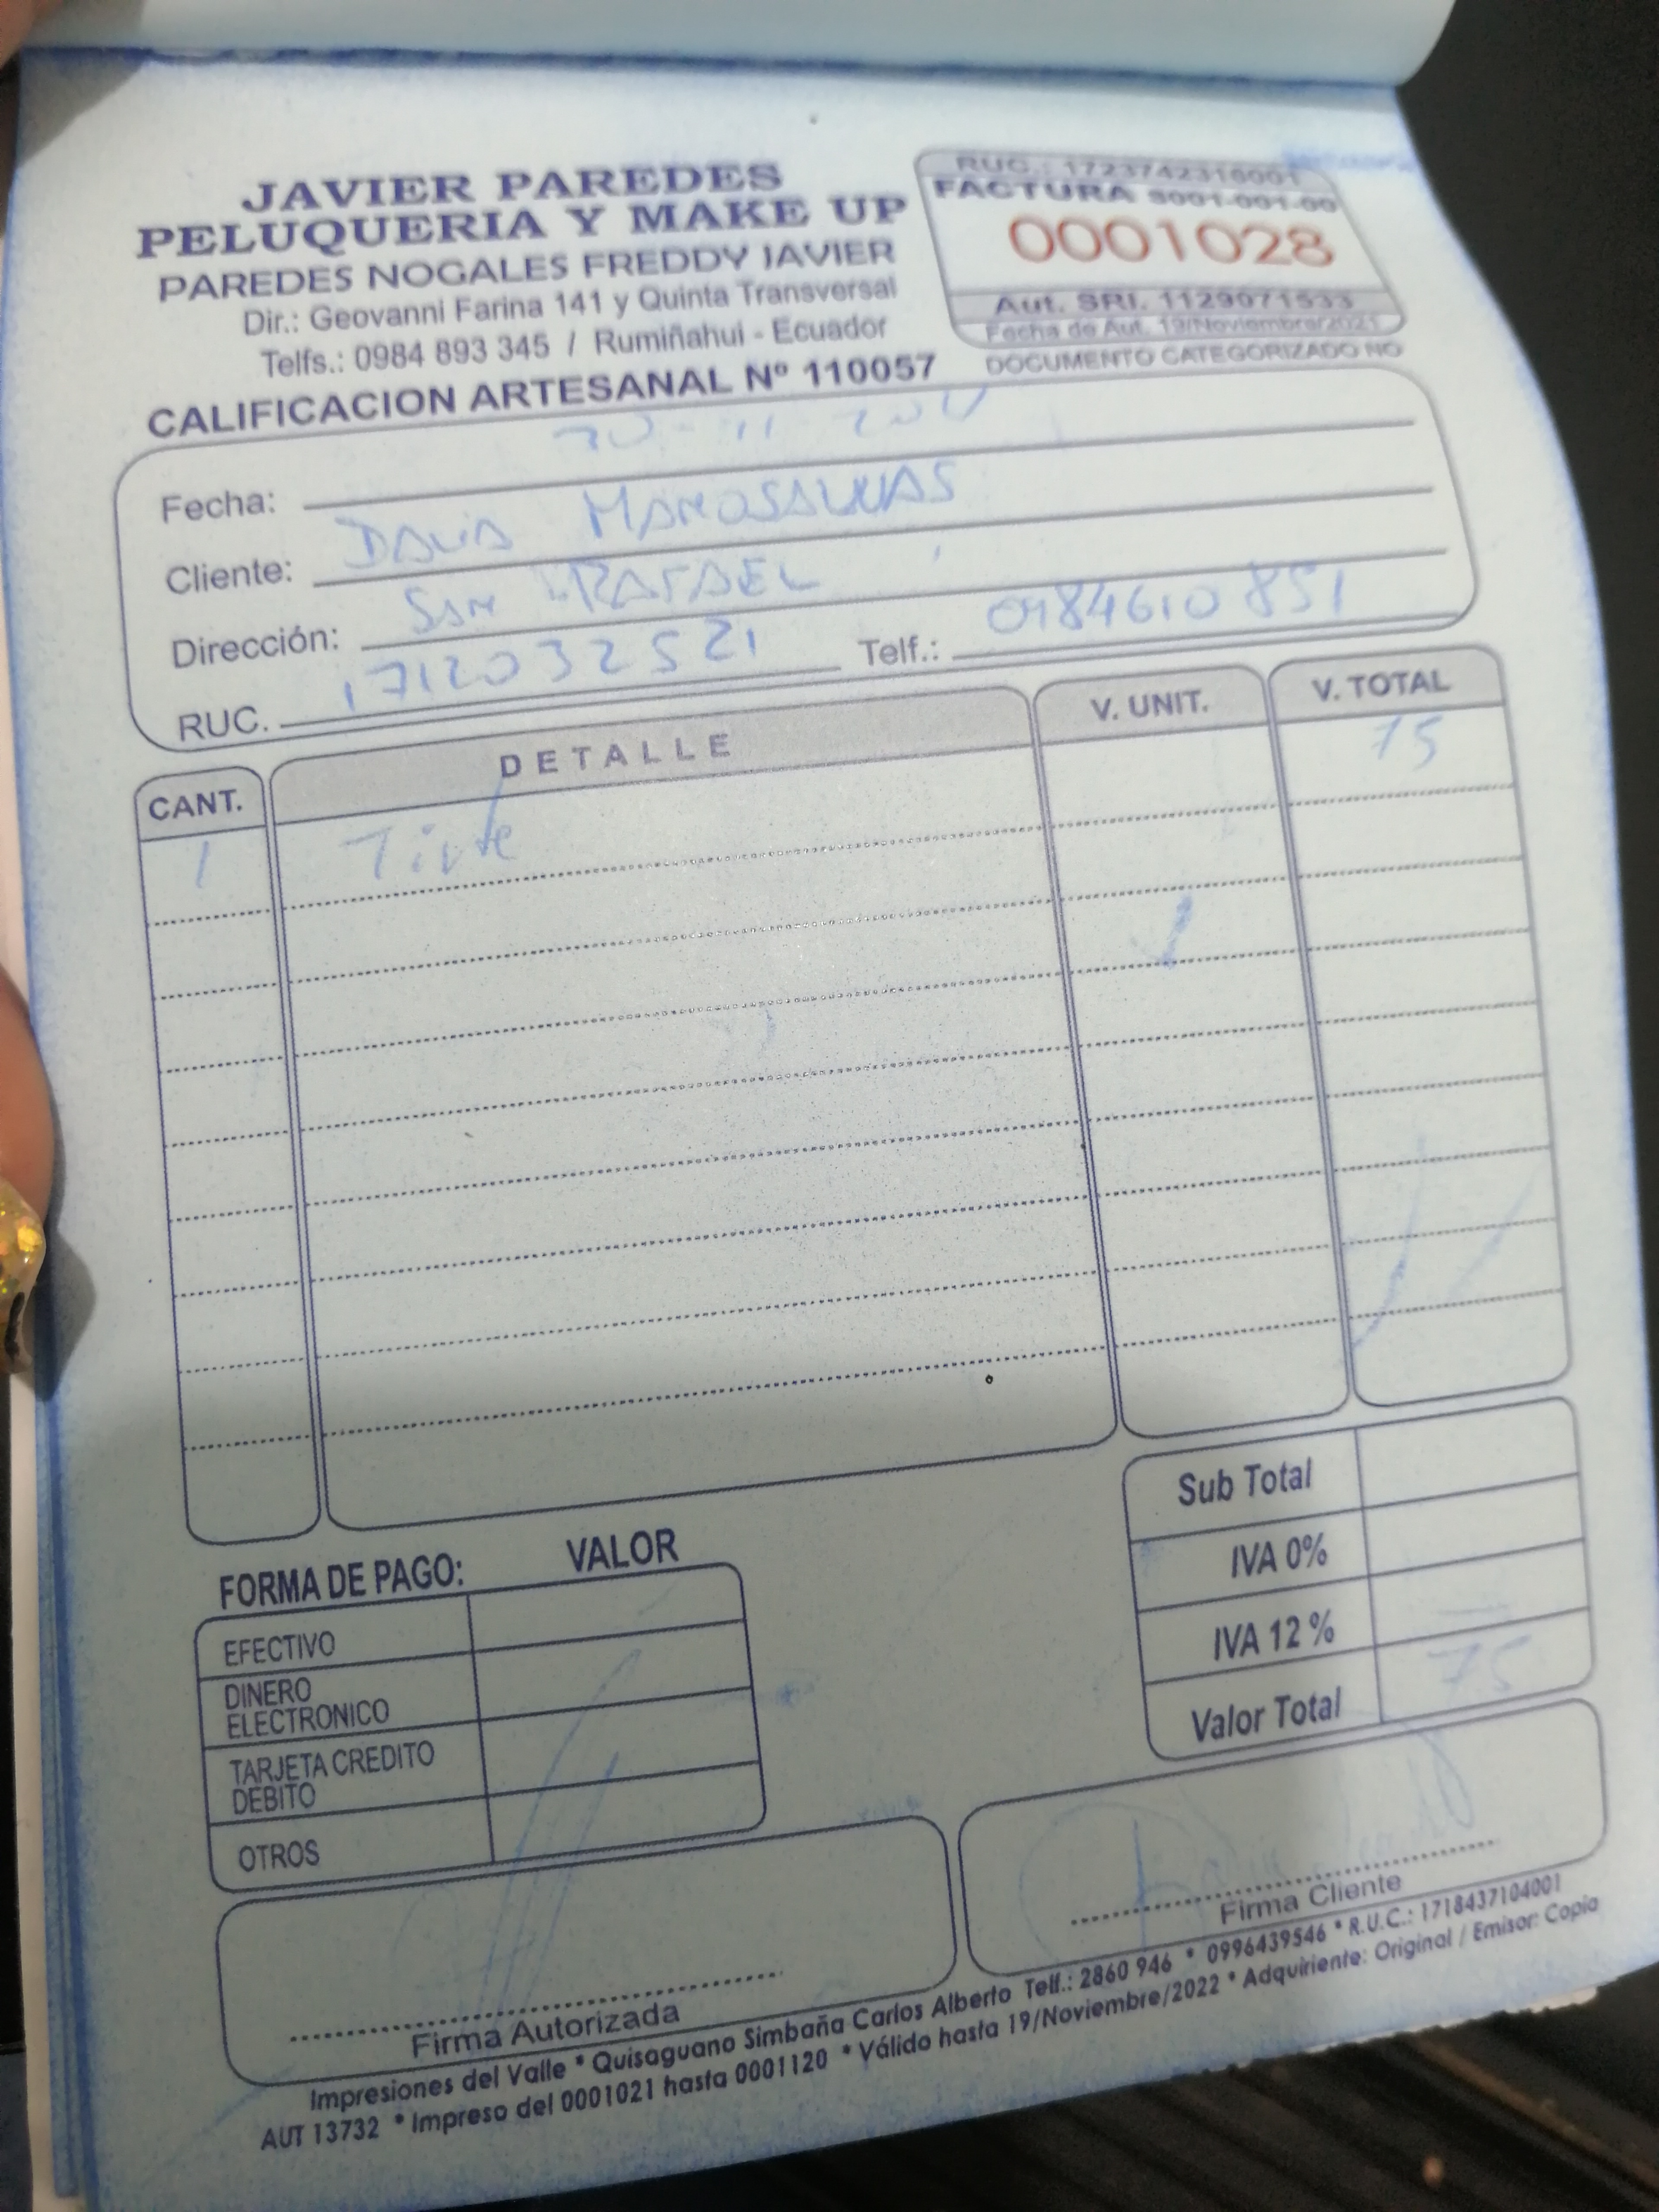 JAVIER PAREDES
PELUQUERIA Y MAKE UP
PAREDES NOGALES FREDDY JAVIER
Dir.: Geovanni Farina 141 y Quinta Transversal
Telfs.: 0984 893 345 / Rumiñahui - Ecuador
CALIFICACION ARTESANAL Nº 110057
RUC.: 1723742316001
FACTURA S001-001-00
0001028
Aut. SRI. 1129071533
Fecha de Aut. 19/Noviembre/2021
DOCUMENTO CATEGORIZADO NO
Fecha:
Cliente: MANOSALVAS
Dirección: SAN RAFAEL
RUC. 1712032521 Telf.: 0984610851
CANT. DETALLE V. UNIT. V. TOTAL
1 Tinte 75
Sub Total
IVA 0%
IVA 12 %
Valor Total 75
FORMA DE PAGO: VALOR
EFECTIVO
DINERO
ELECTRONICO
TARJETA CREDITO
DEBITO
OTROS
Firma Autorizada
Firma Cliente
Impresiones del Valle * Quisaguano Simbaña Carlos Alberto Telf.: 2860 946 * 0996439546 * R.U.C.: 1718437104001
AUT 13732 * Impreso del 0001021 hasta 0001120 * Válido hasta 19/Noviembre/2022 * Adquiriente: Original / Emisor: Copia